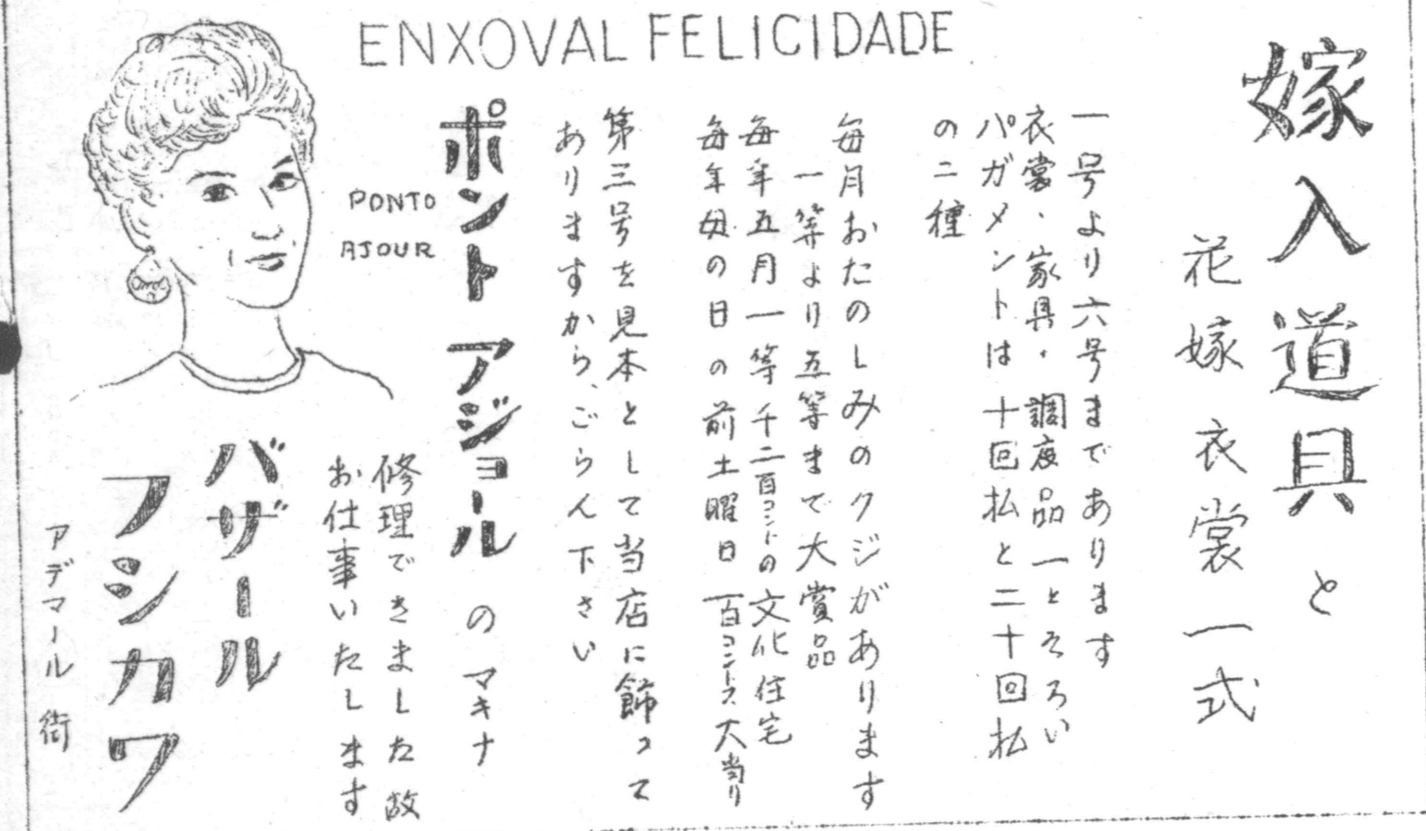 ENXOVAL FELICIDADE
嫁入道具と
花嫁衣裳一式
一号より六号まであります
衣裳、家具、調度品一とそろい
パガメントは十回払と二十回払
の二種
毎月おたのしみのクジがあります
一等より五等まで大賞品
毎年五月一等千二百コントの文化住宅
毎年母の日の前土曜日百コントス大当り
第三号を見本として当店に飾って
ありますから、ごらん下さい
ポント アジョールのマキナ
PONTO
AJOUR
修理できました故
お仕事いたします
バザール
フシカワ
アデマール街